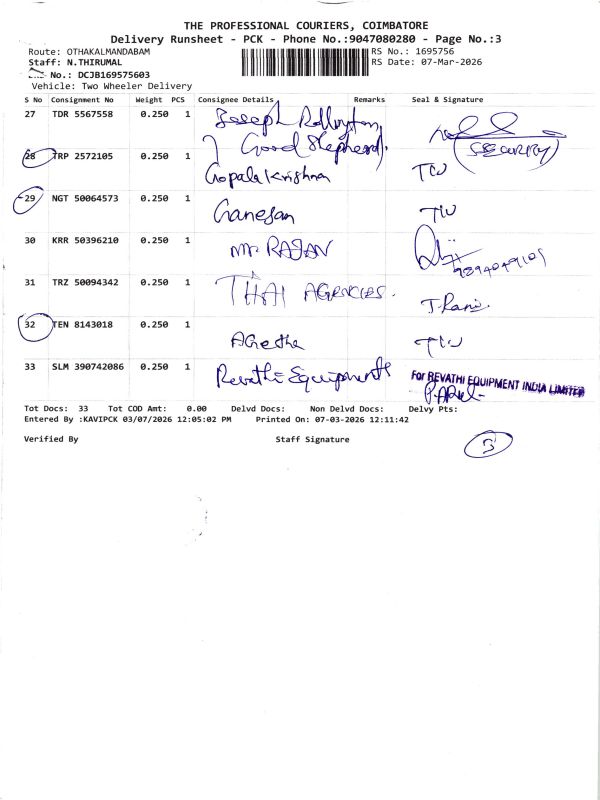 THE PROFESSIONAL COURIERS, COIMBATORE
Delivery Runsheet - PCK - Phone No.:9047080280 - Page No.:3
Route: OTHAKALMANDABAM RS No.: 1695756
Staff: N.THIRUMAL RS Date: 07-Mar-2026
No.: DCJB169575603
Vehicle: Two Wheeler Delivery
S No Consignment No Weight PCS Consignee Details Remarks Seal & Signature
27 TDR 5567558 0.250 1 Joseph
Good Shepherd
(SECURITY)
28 TRP 2572105 0.250 1 Gopala Krishnan
29 NGT 50064573 0.250 1 Ganesan
30 KRR 50396210 0.250 1 Mr. RAJAN
31 TRZ 50094342 0.250 1 THAI AGENCIES. J. Rani
32 TEN 8143018 0.250 1
33 SLM 390742086 0.250 1 Revathi Equipments For REVATHI EQUIPMENT INDIA LIMITED
Tot Docs: 33 Tot COD Amt: 0.00 Delvd Docs: Non Delvd Docs: Delvy Pts:
Entered By :KAVIPCK 03/07/2026 12:05:02 PM Printed On: 07-03-2026 12:11:42
Verified By Staff Signature